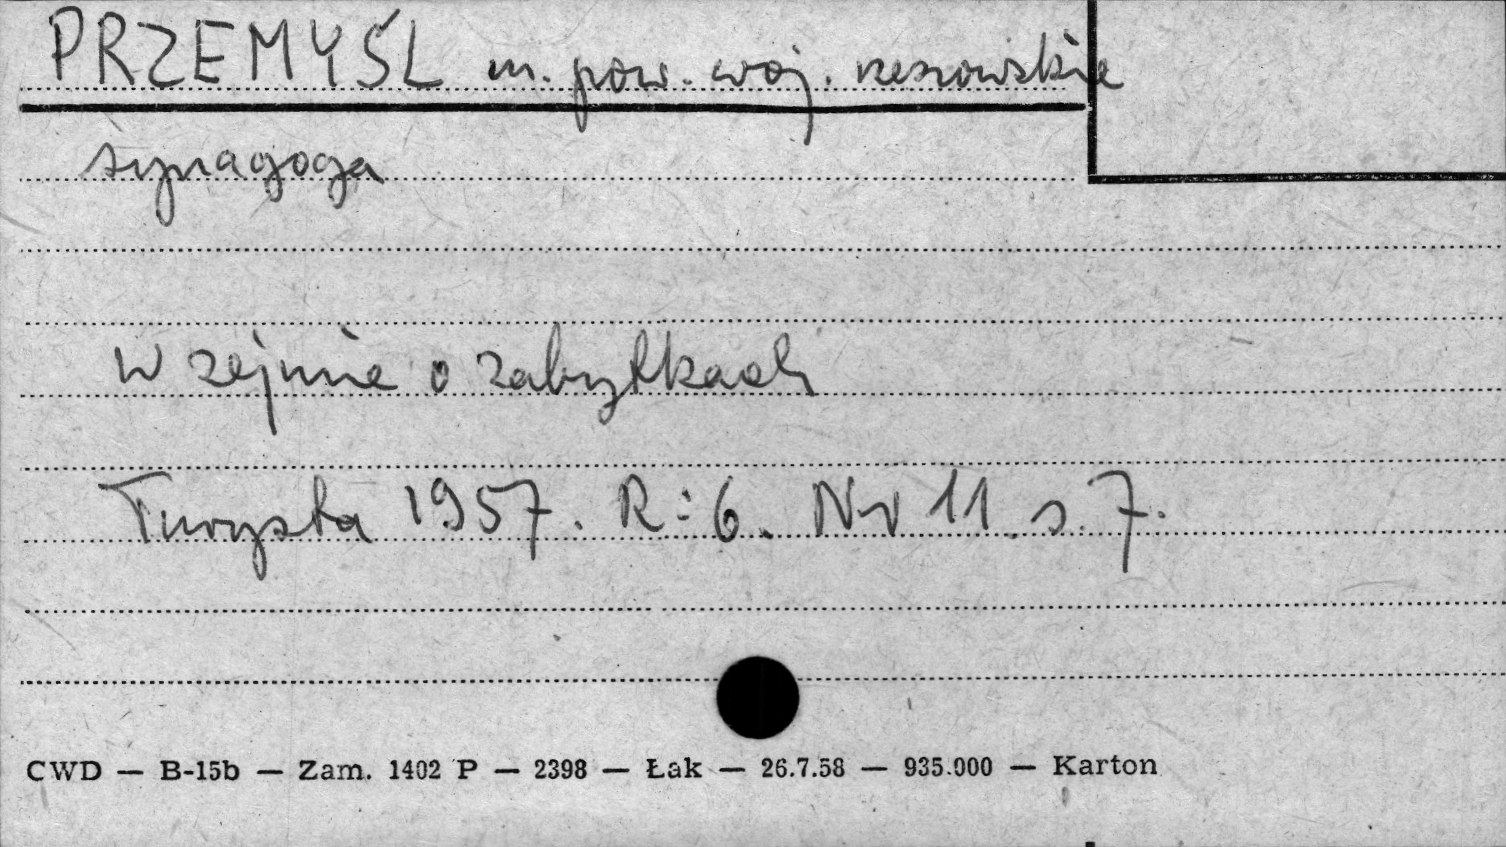 PRZEMYŚL m. pow. woj. rzeszowskie
synagoga
W sejmie o zabytkach
Turysta 1957. R: 6. Nr 11 s. 7.
CWD — B-15b — Zam. 1402 P — 2398 — Łak — 26.7.58 — 935.000 — Karton